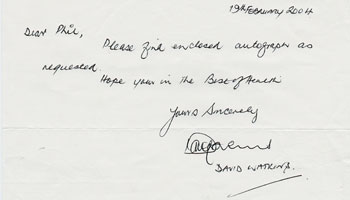 19th February 2004
Dear Phil,
Please find enclosed autograph as
requested.
Hope your in the Best of Health
Yours Sincerely
DAVID WATKINS.